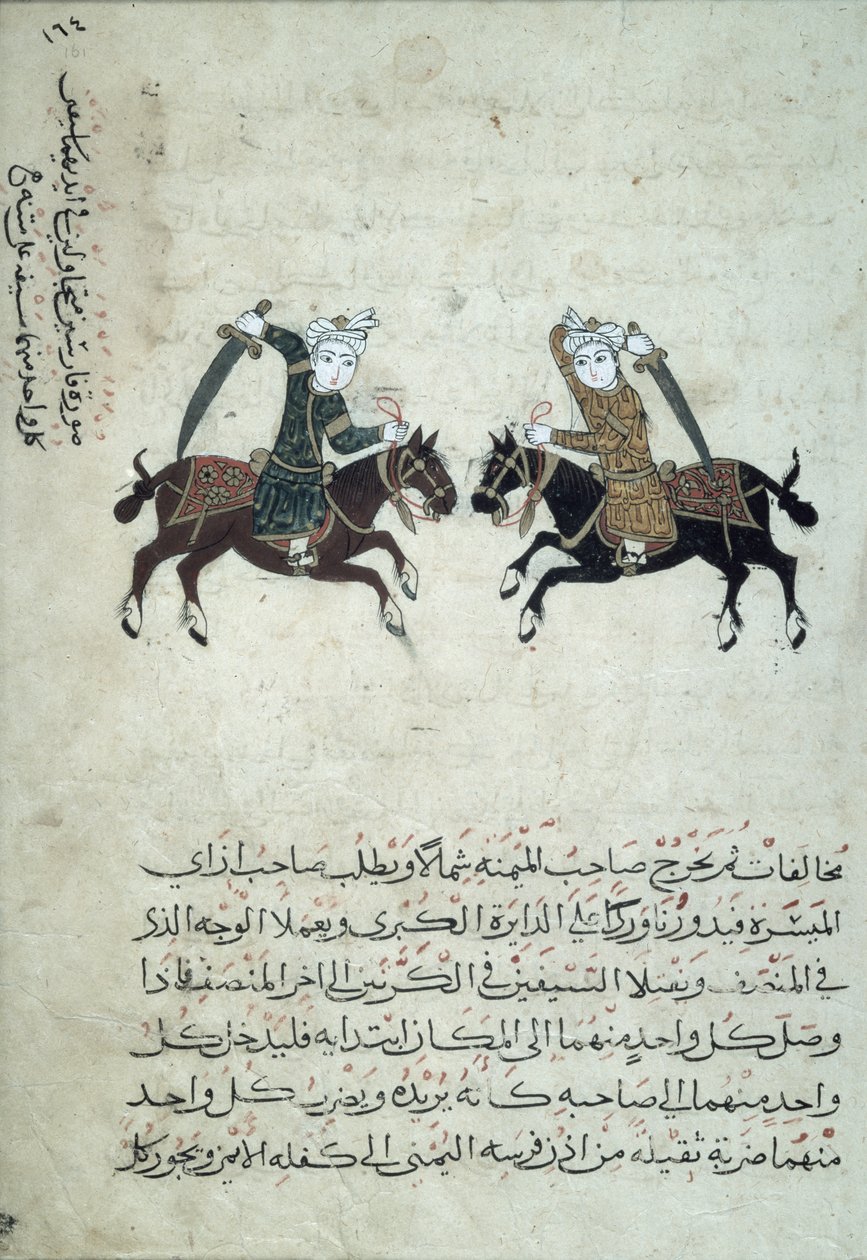 ١٦٤
161
صورة فارسين متجاولين في ايديهما سيفين
كل واحد منهما سيفه على متنه
مُخالفات ثم يَخرج صاحب الميمنه شمالًا ويطلب صاحب ازاي
الميسرة فيدورُنا وركًا علي الدايرة الكبرى ويعملا الوجه الذى
في المنصَف وينقلا السيفين في الكرتين الى اخر المنصف فاذا
وصَلَ كل واحدٍ منهما الى المكان ابتدايه فليدخل كل
واحدٍ منهما الي صَاحبهِ كانه يريده ويضرب كل واحد
منهما ضربة ثقيلة من اذن فرسه اليمنى الى كفله الايمن ويجوز كل